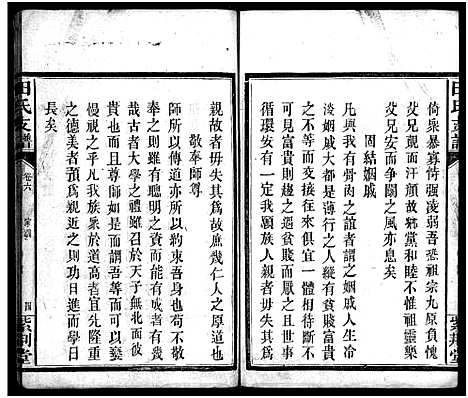 倚衆暴寡恃强凌弱吾恐祖宗九原負愧
父兄覿面汗顔故鄰黨和睦不獨祖靈樂
父兄安而爭鬭之風亦息矣
固結姻戚
戚與我有骨肉之誼者謂之姻戚人情澆
淺姻戚大半等於薄行之人縱有貧賤富貴
之不等而休戚相共究宜一體相待
可重富貴則趨之遇貧賤而去之不知
循環安有一定我願族人親者毋失其為
親故者毋失其為故庶幾仁人之原道也
敬奉師尊
師所以傳道亦所以約束吾身也可不敬
奉之則雖有聰明之資而能有成者
也古者大學之禮雖召於天子無北面彼
萬乘之尊且尊師如是而謂吾等而可以褻
慢視之乎凡我族衆於道高者宜敬之師
之德美者預為親近之則功日進而學日
長矣
田氏支譜
卷六
家訓
四
紫荊堂
田氏支譜
紫荊堂